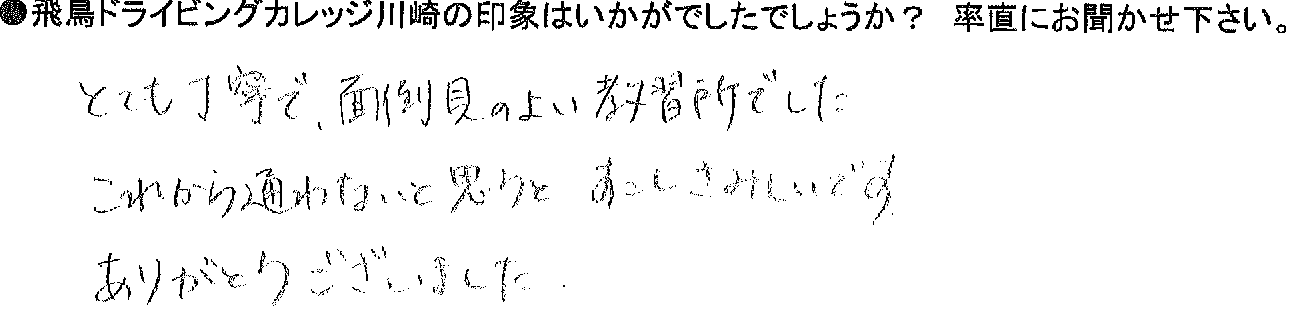 ●飛鳥ドライビングカレッジ川崎の印象はいかがでしたでしょうか？ 率直にお聞かせ下さい。
とても丁寧で、面倒見のよい教習所でした
これから通わないと思うと すこしさみしいです
ありがとうございました.